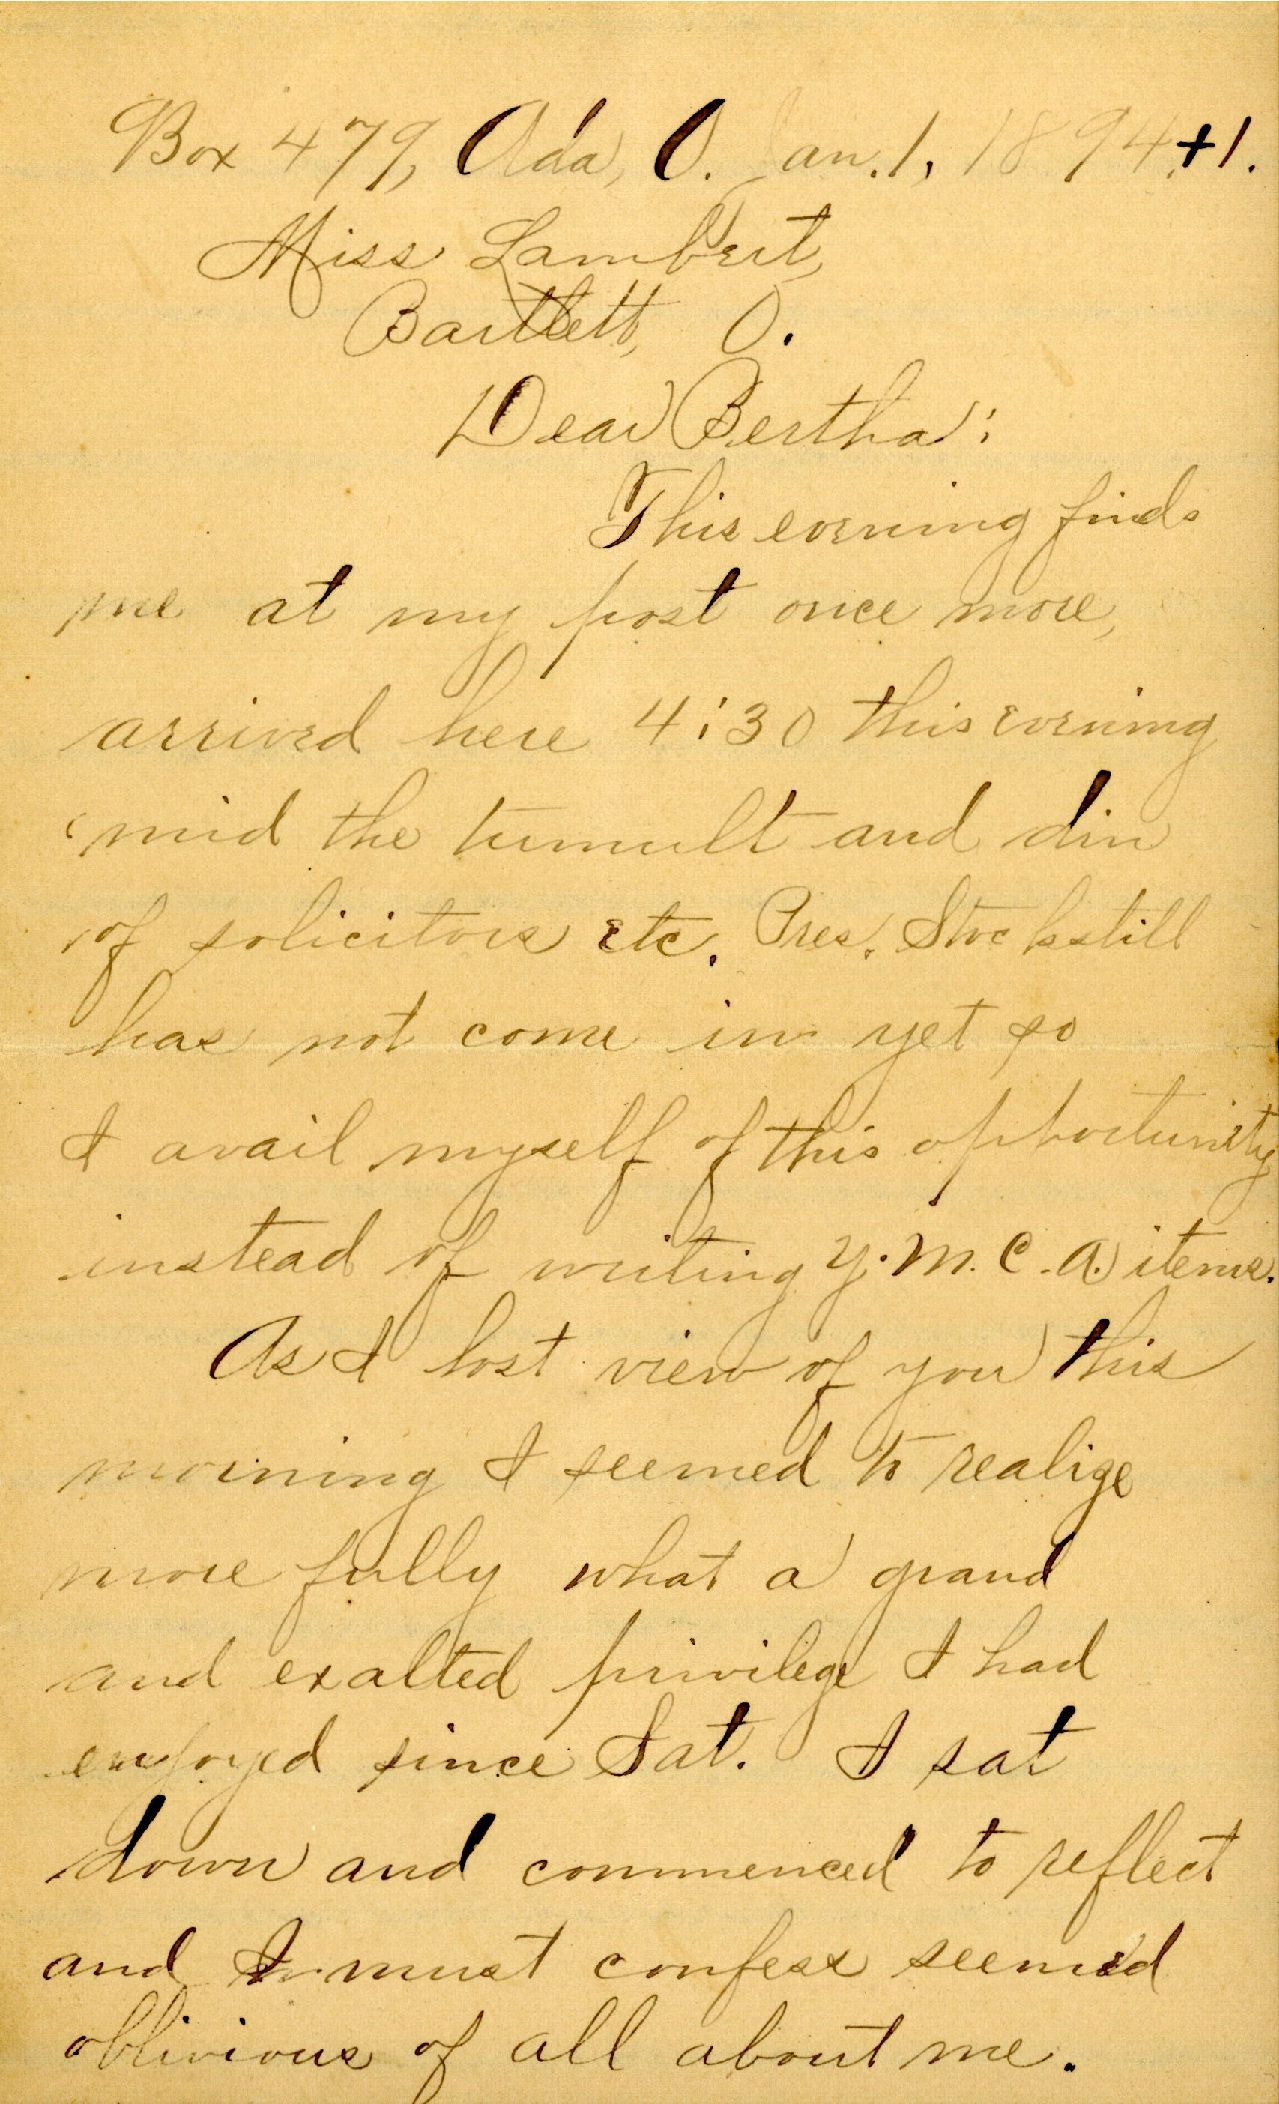 Box 479, Ada, O. Jan. 1, 1894+1.
Miss Lambert,
Bartlett, O.
Dear Bertha:
This evening finds
me at my post once more,
arrived here 4:30 this evening
'mid the tumult and din
of solicitors etc. Pres. Stockstill
has not come in yet so
I avail myself of this opportunity
instead of writing Y.M.C.A. items.
As I lost view of you this
morning I seemed to realize
more fully what a grand
and exalted privilege I had
enjoyed since Sat. I sat
down and commenced to reflect
and I must confess seemed
oblivious of all about me.